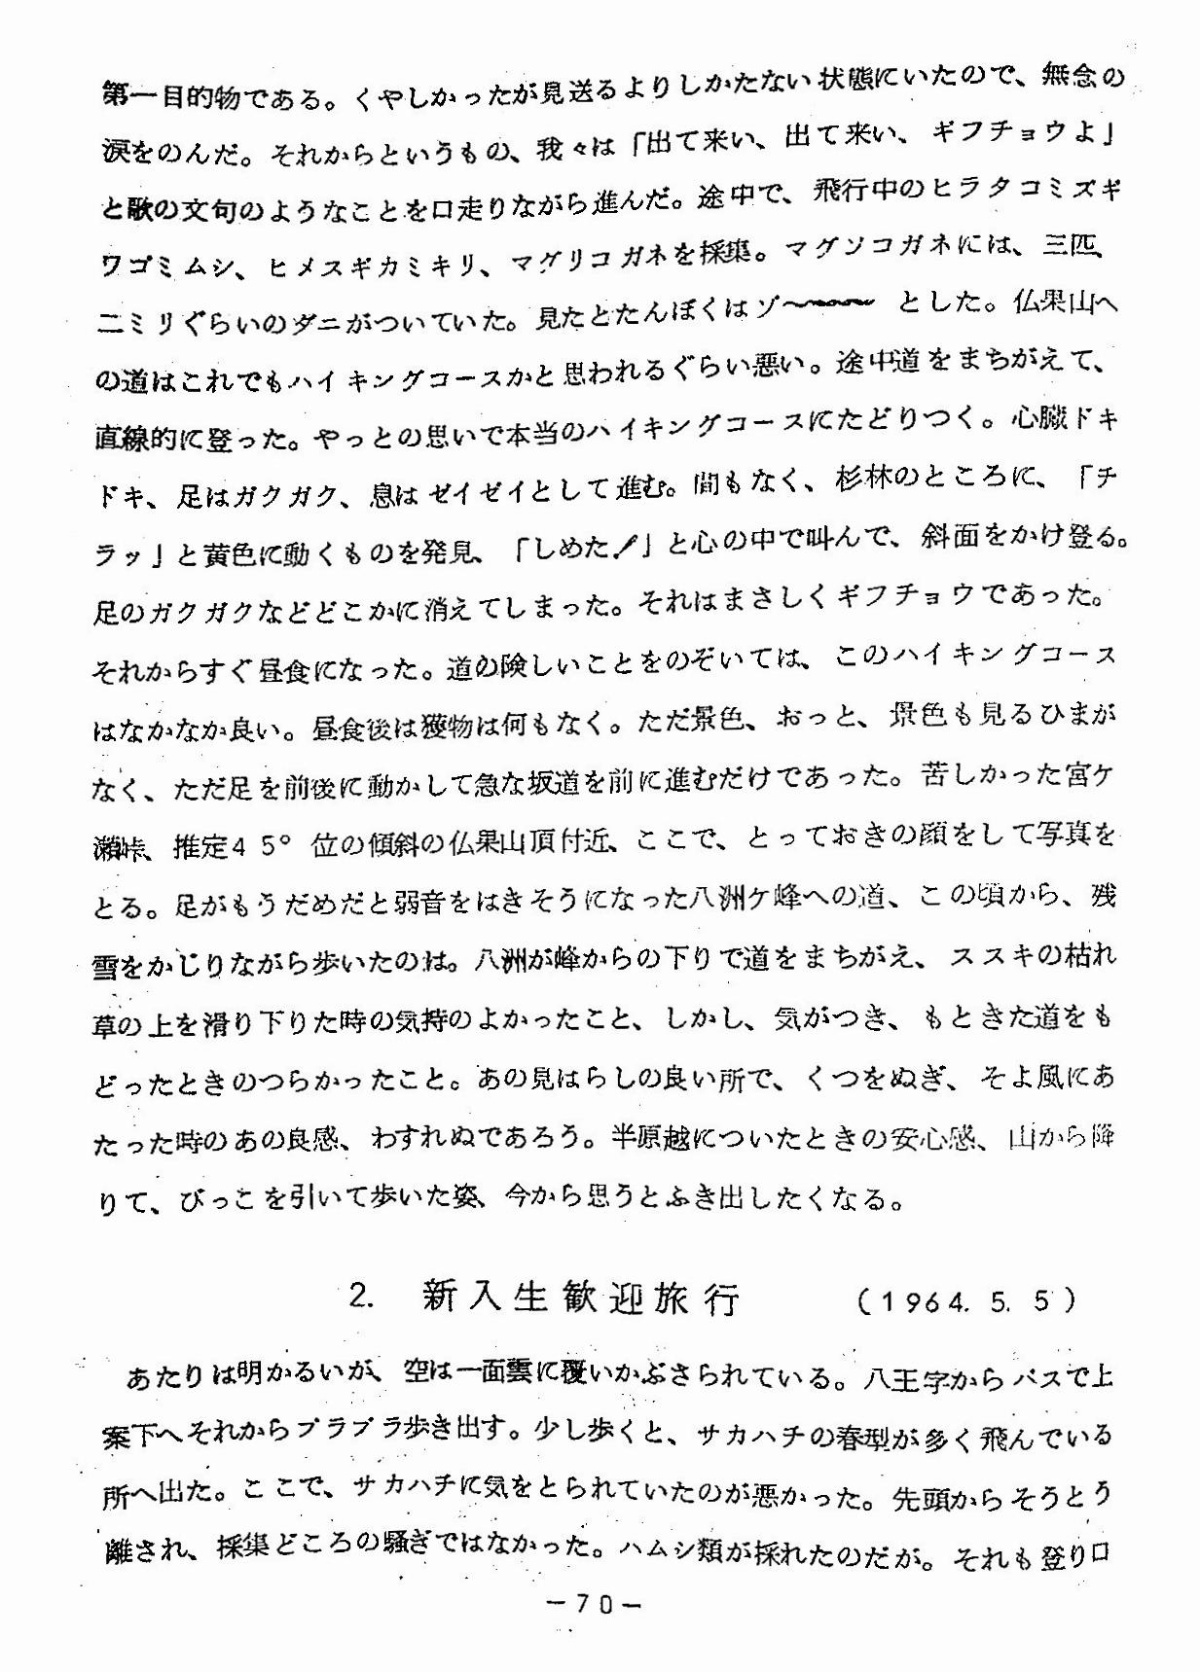 第一目的物である。くやしかったが見送るよりしかたない状態にいたので、無念の
涙をのんだ。それからというもの、我々は「出て来い、出て来い、ギフチョウよ」
と歌の文句のようなことを口走りながら進んだ。途中で、飛行中のヒラタコミズギ
ワゴミムシ、ヒメスギカミキリ、マグリコガネを採集。マグソコガネには、三匹、
二ミリぐらいのダニがついていた。見たとたんぼくはゾ〜〜〜〜 とした。仏果山へ
の道はこれでもハイキングコースかと思われるぐらい悪い。途中道をまちがえて、
直線的に登った。やっとの思いで本当のハイキングコースにたどりつく。心臓ドキ
ドキ、足はガクガク、息はゼイゼイとして進む。間もなく、杉林のところに、「チ
ラッ」と黄色に動くものを発見、「しめた!」と心の中で叫んで、斜面をかけ登る。
足のガクガクなどどこかに消えてしまった。それはまさしくギフチョウであった。
それからすぐ昼食になった。道の険しいことをのぞいては、このハイキングコース
はなかなか良い。昼食後は獲物は何もなく。ただ景色、おっと、景色も見るひまが
なく、ただ足を前後に動かして急な坂道を前に進むだけであった。苦しかった宮ケ
瀬峠、推定45° 位の傾斜の仏果山頂付近、ここで、とっておきの顔をして写真を
とる。足がもうだめだと弱音をはきそうになった八洲ケ峰への道、この頃から、残
雪をかじりながら歩いたのは。八洲が峰からの下りで道をまちがえ、ススキの枯れ
草の上を滑り下りた時の気持のよかったこと、しかし、気がつき、もときた道をも
どったときのつらかったこと。あの見はらしの良い所で、くつをぬぎ、そよ風にあ
たった時のあの良感、わすれぬであろう。半原越についたときの安心感、山から降
りて、びっこを引いて歩いた姿、今から思うとふき出したくなる。
2. 新入生歓迎旅行 (1964. 5. 5)
あたりは明かるいが、空は一面雲に覆いかぶさられている。八王字からバスで上
案下へそれからブラブラ歩き出す。少し歩くと、サカハチの春型が多く飛んでいる
所へ出た。ここで、サカハチに気をとられていたのが悪かった。先頭からそうとう
離され、採集どころの騒ぎではなかった。ハムシ類が採れたのだが。それも登り口
－70－